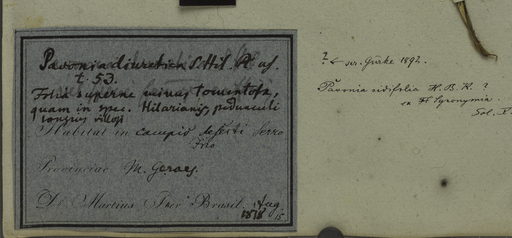 Pavonia diuretica S. Hil. Pl. us.
t. 53.
Folia superne minus tomentosa,
quam in spec. Hilarianis, pedunculi
longius villosi
Habitat in campis deserti Serro
Frio
Provinciae M. Geraes.
Dr. Martius Iter Brasil. Aug
1818
? ser. Gürke 1892.
Pavonia sidifolia H. B. K. ?
ex Fl. synonymia.